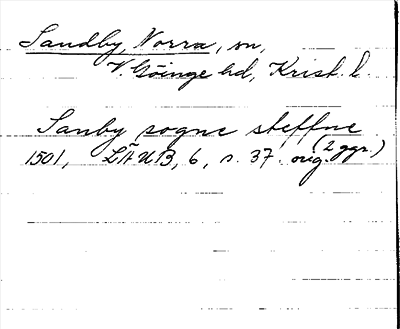 Sandby, Norra, sn,
V. Göinge hd, Krist. l.
Sanby sogne steffne
1501, LÄUB, 6, s. 37. orig. (2 ggr.)